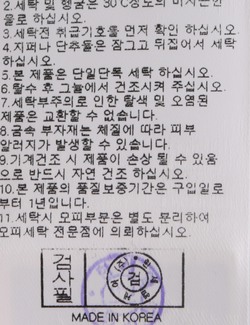 2.세탁 및 헹굼은 30℃정도의 미지근한
물로 하십시오.
3.세탁전 취급기호를 먼저 확인 하십시오.
4.지퍼나 단추들은 잠그고 뒤집어서 세탁
하십시오.
5.본 제품은 단일단독 세탁 하십시오.
6.탈수 후 그늘에서 건조시켜 주십시오.
7.세탁부주의로 인한 탈색 및 오염된
제품은 교환할 수 없습니다.
8.금속 부자재는 체질에 따라 피부
알러지가 발생할 수 있습니다.
9.기계건조 시 제품이 손상 될 수 있음
으로 반드시 자연 건조 하십시오.
10.본 제품의 품질보증기간은 구입일로
부터 1년입니다.
11.세탁시 모피부분은 별도 분리하여
모피세탁 전문점에 의뢰하십시오.
검사필
검
MADE IN KOREA